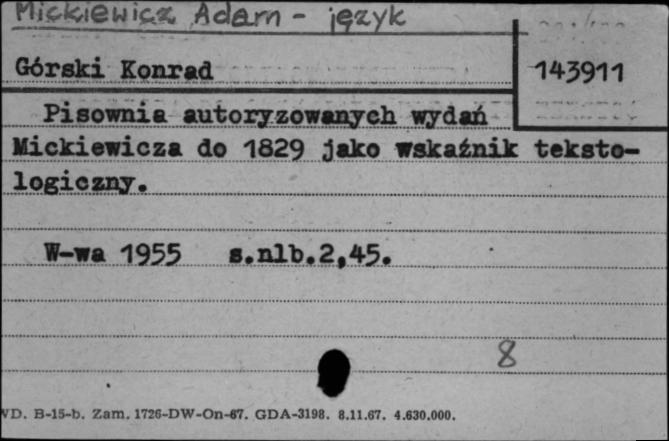 Mickiewicz Adam - język
Górski Konrad
143911
Pisownia autoryzowanych wydań
Mickiewicza do 1829 jako wskaźnik teksto-
logiczny.
W-wa 1955 s.nlb.2,45.
8
WD. B-15-b. Zam. 1726-DW-On-67. GDA-3198. 8.11.67. 4.630.000.